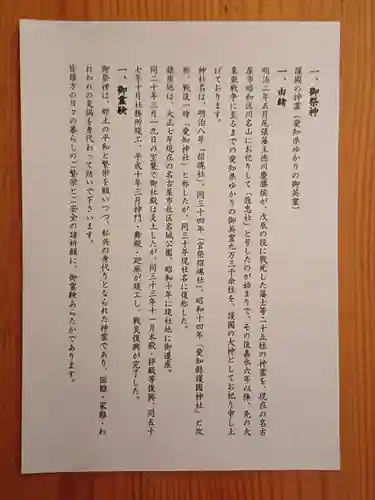 一、御祭神
護國の神霊（愛知県ゆかりの御英霊）
一、由緒
明治二年五月尾張藩主徳川慶勝侯が、戊辰の役に戦死した藩士等二十五柱の神霊を、現在の名古
屋市昭和区川名山にお祀りして「旌忠社」と号したのが始まりで、その後嘉永六年以降、先の大
東亜戦争に至るまでの愛知県ゆかりの御英霊九万三千余柱を、護國の大神としてお祀り申し上
げております。
神社名は、明治八年「招魂社」、同三十四年「官祭招魂社」、昭和十四年「愛知縣護國神社」と改
称、戦後一時「愛知神社」と称したが、同三十年現社名に復称した。
鎮座地は、大正七年現在の名古屋市北区名城公園、昭和十年に現社地に御遷座。
同二十年三月一九日の空襲で御社殿は炎上したが、同三十三年十一月本殿・拝殿等復興、同五十
七年十月社務所竣工、平成十年三月神門・舞殿・廻廊が竣工し、戦災復興が完了した。
一、御霊験
御祭神は、郷土の平和と繁栄を願いつつ、私共の身代りとなられた神霊であり、国難・家難・わ
れわれの災禍を身代わって防いで下さいます。
皆様方の日々の暮らしのご繁栄とご安全の諸祈願に、御霊験あらたかであります。